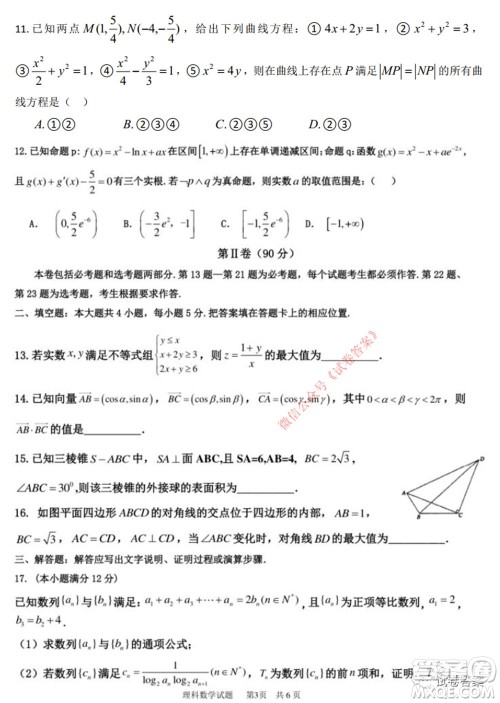 11.已知两点 M(1, 5/4), N(-4,-5/4), 给出下列曲线方程: ① 4x+2y=1, ② x²+y²=3,
③ x²/2+y²=1, ④ x²/4-y²/3=1, ⑤ x²=4y, 则在曲线上存在点 P 满足 |MP|=|NP| 的所有曲
线方程是( )
A.①② B.②③ C.②④ D.④⑤
12.已知命题 p: f(x)=x²-ln x+ax 在区间[1,+∞)上存在单调递减区间; 命题 q:函数 g(x)=x²-x+ae^{-2x},
且 g(x)+g'(x)-5/2=0 有三个实根. 若¬p∧q 为真命题, 则实数 a 的取值范围是: ( )
A. (0, 5/2 e^{-6}) B. (-3/2 e², -1] C. [-1, 5/2 e^{-6}) D. [-1, 5/2 e^{-6}]
第Ⅱ卷(90 分)
本卷包括必考题和选考题两部分. 第 13 题—第 21 题为必考题, 每个试题考生都必须作答. 第 22 题、
第 23 题为选考题, 考生根据要求作答.
二、填空题: 本大题共 4 小题, 每小题 5 分. 把答案填在答题卡上的相应位置.
13. 若实数 x, y 满足不等式组 { y≤x x+2y≥3 2x+y≥6, 则 z=(1+y)/x 的最大值为
14. 已知向量 AB=(cosα,sinα), BC=(cosβ,sinβ), CA=(cosγ,sinγ), 其中 0<α<β<γ<2π, 则
AB·BC 的值是
15. 已知三棱锥 S-ABC 中, SA⊥面 ABC,且 SA=6,AB=4, BC=2√3,
∠ABC=30⁰,则该三棱锥的外接球的表面积为
16. 如图平面四边形 ABCD 的对角线的交点位于四边形的内部, AB=1,
BC=√3, AC=CD, AC⊥CD, 当∠ABC 变化时, 对角线 BD 的最大值为
A
B
C
D
三、解答题: 解答应写出文字说明、证明过程或演算步骤.
17. (本小题满分 12 分)
已知数列{aₙ}与{bₙ}满足: a₁+a₂+a₃+⋯+aₙ=2bₙ(n∈N*), 且{aₙ}为正项等比数列, a₁=2,
b₃=b₂+4.
(1) 求数列{aₙ}与{bₙ}的通项公式;
(2) 若数列{cₙ}满足 cₙ=1/(log₂aₙ log₂aₙ₊₁)(n∈N*), Tₙ为数列{cₙ}的前 n 项和, 证明
理科数学试题 第3页 共6页
微信公众号《试卷答案》
试卷答案